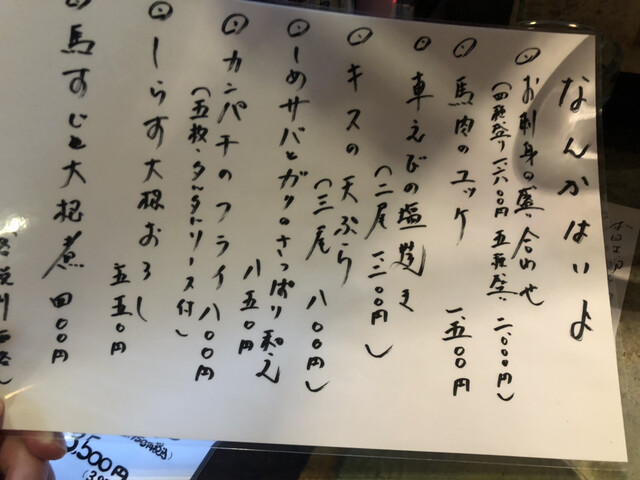 なんかはいよ
◎お刺身の盛り合わせ
(四種盛り 一、六〇〇円 五種盛り 二、〇〇〇円)
◎馬肉のユッケ 一、五〇〇円
◎車えびの塩焼き
(二尾 一、二〇〇円)
◎キスの天ぷら
(三尾 八〇〇円)
◎しめサバとガリのさっぱり和え
八五〇円
◎カンパチのフライ 八〇〇円
(五枚・タルタルソース付)
◎しらす大根おろし
五五〇円
◎馬すじと大根煮 四〇〇円
3,500円